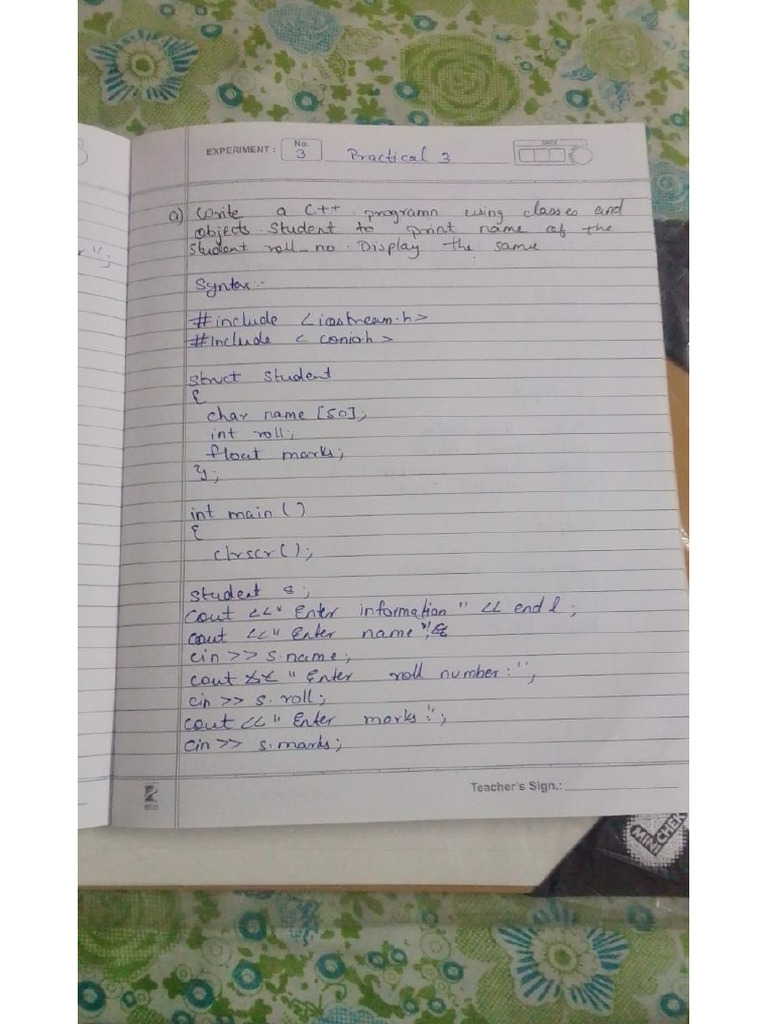 EXPERIMENT : No. 3 Practical 3 DATE
a) Write a C++ programn using classes and
objects Student to print name of the
Student roll no. Display the same
Syntax :-
#include <iostream.h>
#Include < conio.h >
struct Student
{
char name [50];
int roll;
float marks;
};
int main ()
{
clrscr();
student s;
cout << " Enter information " << endl;
cout << " Enter name ";
cin >> s.name;
cout << " Enter roll number : ";
cin >> s.roll;
cout << " Enter marks: ";
cin >> s.marks;
Teacher's Sign.:
MINI CHEF
";